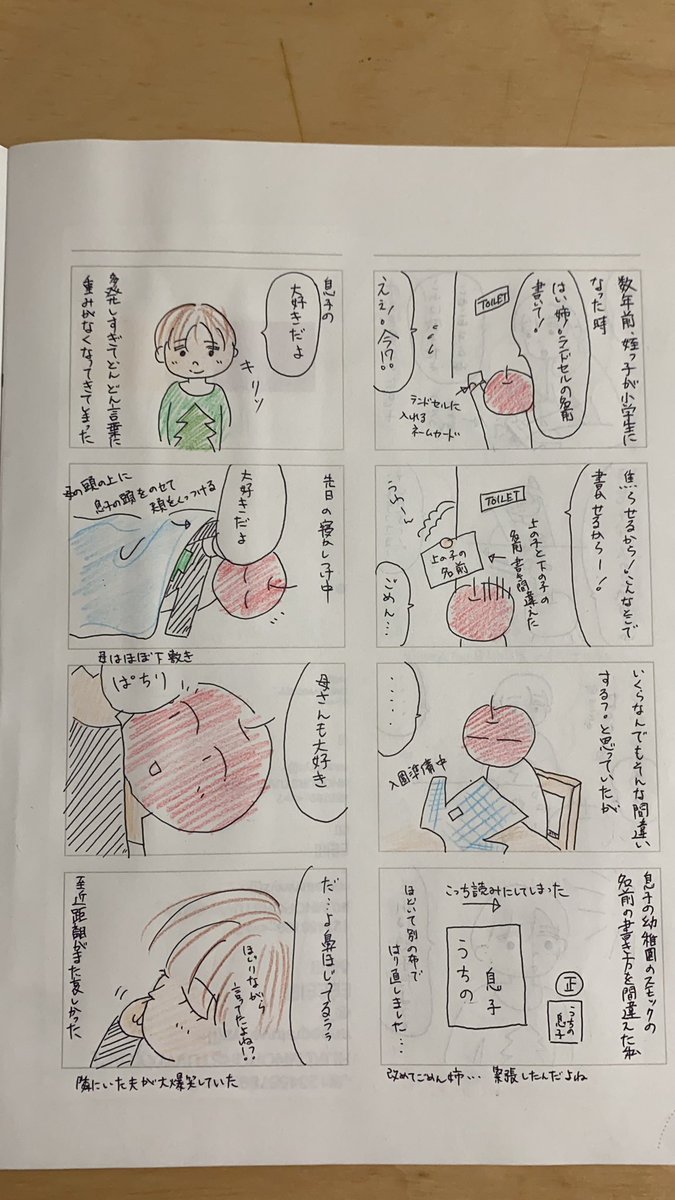 数年前、姪っ子が小学生に
なった時
はい姉!ランドセルの名前
書いて!
TOILET
えぇ!今!?
ランドセルに
入れる
ネームカード
焦らせるから!こんなとこで
書かせるからー!
TOILET
上の子と下の子の
名前書き間違えた
上の子の
名前
うわーん
ごめん…
いくらなんでもそんな間違い
する?と思っていたが
・・・・・
入園準備中
息子の幼稚園のスモックの
名前の書き方を間違えた私
こっち読みにしてしまった
正
うちの
息子
息子
うちの
ほどいて別の布で
はり直しました…
改めてごめん姉… 緊張したんだよね
息子の
大好きだよ
キリッ
多発しすぎてどんどん言葉に
重みがなくなってきてしまった
先日の寝かし中
大好きだよ
母の頭の上に
息子の頭をのせて
頬をくっつける
母はほぼ下敷き
母さんも大好き
ぱちり
だ…よ鼻ほじってるぅぅ
ほじりながら
言ってたよね!?
至近距離がまた哀しかった
隣にいた夫が大爆笑していた